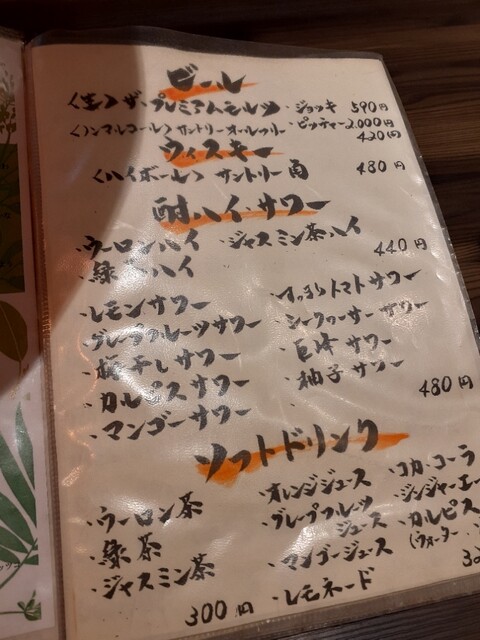 ビール
〈生〉ザ・プレミアムモルツ ・ジョッキ 590円
・ピッチャー 2,000円
〈ノンアルコール〉サントリーオールフリー 420円
ウィスキー
〈ハイボール〉サントリー角 480円
酎ハイ・サワー
・ウーロンハイ ・ジャスミン茶ハイ
・緑茶ハイ 440円
・レモンサワー ・すっきりトマトサワー
・グレープフルーツサワー ・シークヮーサーサワー
・梅干しサワー ・巨峰サワー
・カルピスサワー ・柚子サワー
・マンゴーサワー 480円
ソフトドリンク
・ウーロン茶
・緑茶
・ジャスミン茶
300円
・オレンジジュース
・グレープフルーツ
ジュース
・マンゴージュース
・レモネード
・コカ・コーラ
・ジンジャーエー
・カルピス
(ウォーター・